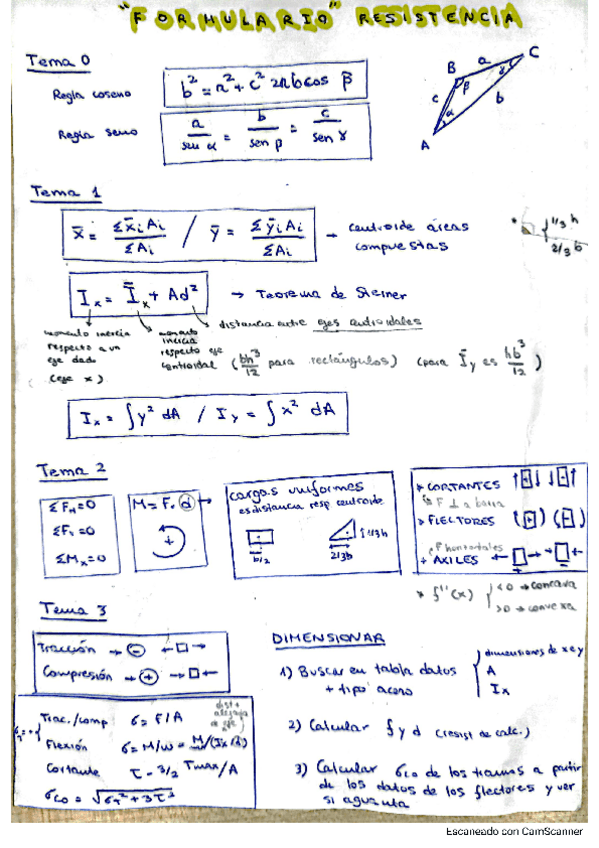 "FORMULARIO" RESISTENCIA
Tema 0
Regla coseno
b² = a² + c² 2ab cos β
Regla seno
a / sen α = b / sen β = c / sen γ
A B C a b c α β γ
Tema 1
x̄ = Σx̄iAi / ΣAi / ȳ = Σȳi Ai / ΣAi → centroide áreas compuestas
1/3 h
2/3 b
Ix = Īx + Ad² → Teorema de Steiner
momento inercia respecto a un eje dado (eje x)
momento inercia respecto eje centroidal (bh³/12 para rectángulos) (para Īy es hb³/12)
distancia entre ejes centroidales
Ix = ∫y² dA / Iy = ∫x² dA
Tema 2
ΣFH=0
ΣFv=0
ΣMx=0
M = F. d →
+
cargas uniformes
es distancia resp centroide
b/2
2/3b
1/3h
* CORTANTES ↑+↓ ↓-↑
F ⊥ a barra
* FLECTORES (+) (-)
F horizontales
* AXILES ←□→ + →□← -
* f''(x) <0 → concava
>0 → convexa
Tema 3
Tracción → - ←□→
Compresión → + →□←
Trac./comp σ = F/A
Flexión σ = M/w = M/(Ix/d)
Cortante τ = 3/2 Tmax/A
σco = √σz² + 3τ²
DIMENSIONAR
1) Buscar en tabla datos + tipo acero
dimensiones de x e y
A
Ix
2) Calcular f y d (resist de calc.)
3) Calcular σco de los tramos a partir
de los datos de los flectores y ver
si aguanta
Escaneado con CamScanner